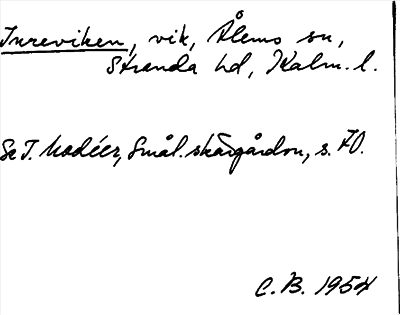 Inreviken, vik, Ålems sn,
Stranda hd, Kalm. l.
Se T. Modéer, Smål. skärgården, s. 70.
C. B. 1954